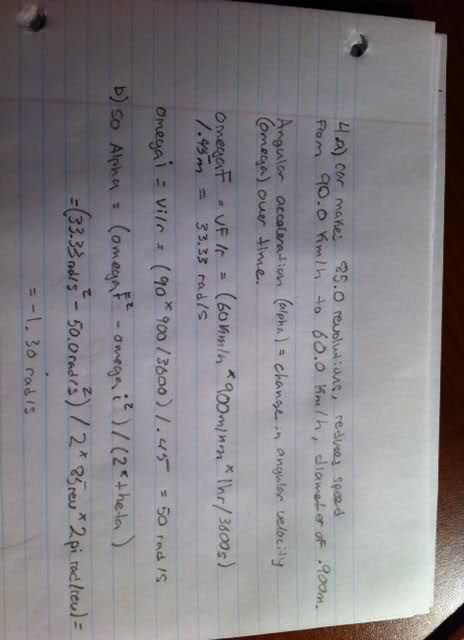 4.a) car makes 85.0 revolutions, reduces speed
from 90.0 Km/h to 60.0 Km/h, diameter of .900m.
Angular acceleration (alpha) = change in angular velocity
(omega) over time.
omegaF = vF/r = (60Km/h * 900m/Km * 1hr/3600s)
/.45m = 33.33 rad/s
omegai = vi/r = (90*900/3600)/.45 = 50 rad/s
b) so Alpha = (omegaF² - omegai²)/(2*theta)
= (33.33rad/s² - 50.0rad/s²)/2*85rev*2pi rad/rev) =
= -1.30 rad/s